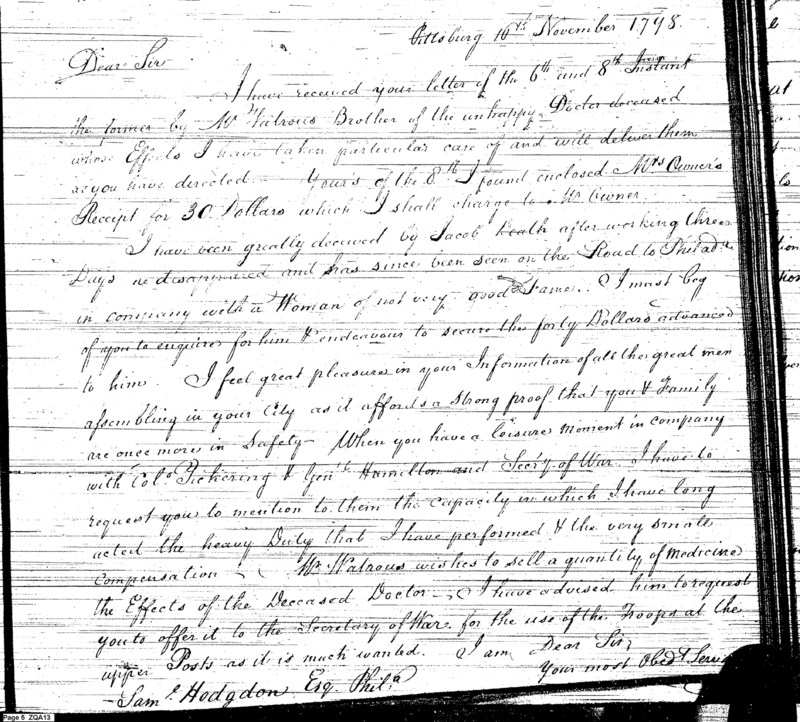 Pittsburg 16th November 1798.
Dear Sir
I have received your letter of the 6th and 8th Instant
the former by Mr Watrous Brother of the unhappy Doctor deceased
whose Effects I have taken particular care of and will deliver them
as you have directed. Yours of the 8th I found enclosed Mrs Owner's
Receipt for 30 Dollars which I shall charge to Mr Owner.
I have been greatly deceived by Jacob after working three
Days he disappeared and has since been seen on the Road to Philada
in company with a Woman of not very good Fame. I must beg
of you to enquire for him & endeavour to secure the forty Dollars advanced
to him. I feel great pleasure in your Information of all the great men
assembling in your City as it affords a strong proof that you & Family
are once more in Safety - When you have a leisure moment in company
with Colo Pickering & Genl Hamilton and Secry of War I have to
request you to mention to them the capacity in which I have long
acted the heavy Duty that I have performed & the very small
compensation - Mr Watrous wishes to sell a quantity of Medicine
the Effects of the Deceased Doctor - I have advised him to request
you to offer it to the Secretary of War for the use of the Troops at the
upper Posts as it is much wanted. I am Dear Sir
Your most Obedt
Saml Hodgdon Esq Phila
Page 5 ZQA13